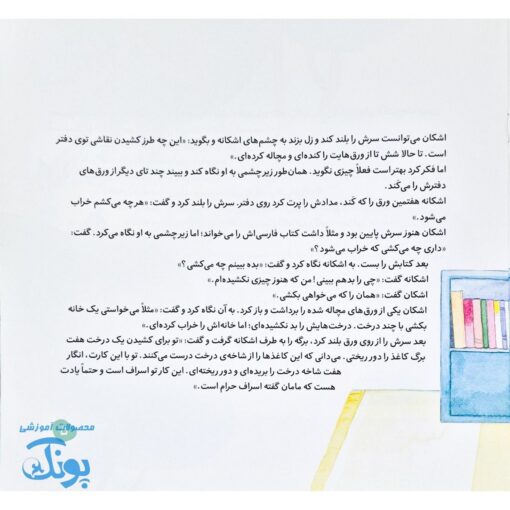 اشکان می‌توانست سرش را بلند کند و زل بزند به چشم‌های اشکانه و بگوید: «این چه طرز کشیدن نقاشی توی دفتر
است. تا حالا شش تا از ورق‌هایت را کنده‌ای و مچاله کرده‌ای.»
اما فکر کرد بهتر است فعلاً چیزی نگوید. همان‌طور زیرچشمی به او نگاه کند و ببیند چند تای دیگر از ورق‌های
دفترش را می‌کَند.
اشکانه هفتمین ورق را که کَند، مدادش را پرت کرد روی دفتر. سرش را بلند کرد و گفت: «هرچه می‌کشم خراب
می‌شود.»
اشکان هنوز سرش پایین بود و مثلاً داشت کتاب فارسی‌اش را می‌خواند؛ اما زیرچشمی به او نگاه می‌کرد. گفت:
«داری چه می‌کشی که خراب می‌شود؟»
بعد کتابش را بست. به اشکانه نگاه کرد و گفت: «بده ببینم چه می‌کشی؟»
اشکانه گفت: «چی را بدهم ببینی! من که هنوز چیزی نکشیده‌ام.»
اشکان گفت: «همان را که می‌خواهی بکشی.»
اشکان یکی از ورق‌های مچاله شده را برداشت و باز کرد. به آن نگاه کرد و گفت: «مثلاً می‌خواستی یک خانه
بکشی با چند درخت. درخت‌هایش را بد نکشیده‌ای؛ اما خانه‌اش را خراب کرده‌ای.»
بعد سرش را از روی ورق بلند کرد. برگه را به طرف اشکانه گرفت و گفت: «تو برای کشیدن یک درخت هفت
برگ کاغذ را دور ریختی. می‌دانی که این کاغذها را از شاخه‌ی درخت درست می‌کنند. تو با این کارت، انگار
هفت شاخه درخت را بریده‌ای و دور ریخته‌ای. این کار تو اسراف است و حتماً یادت
هست که مامان گفته اسراف حرام است.»
محصولات آموزشی
پونک